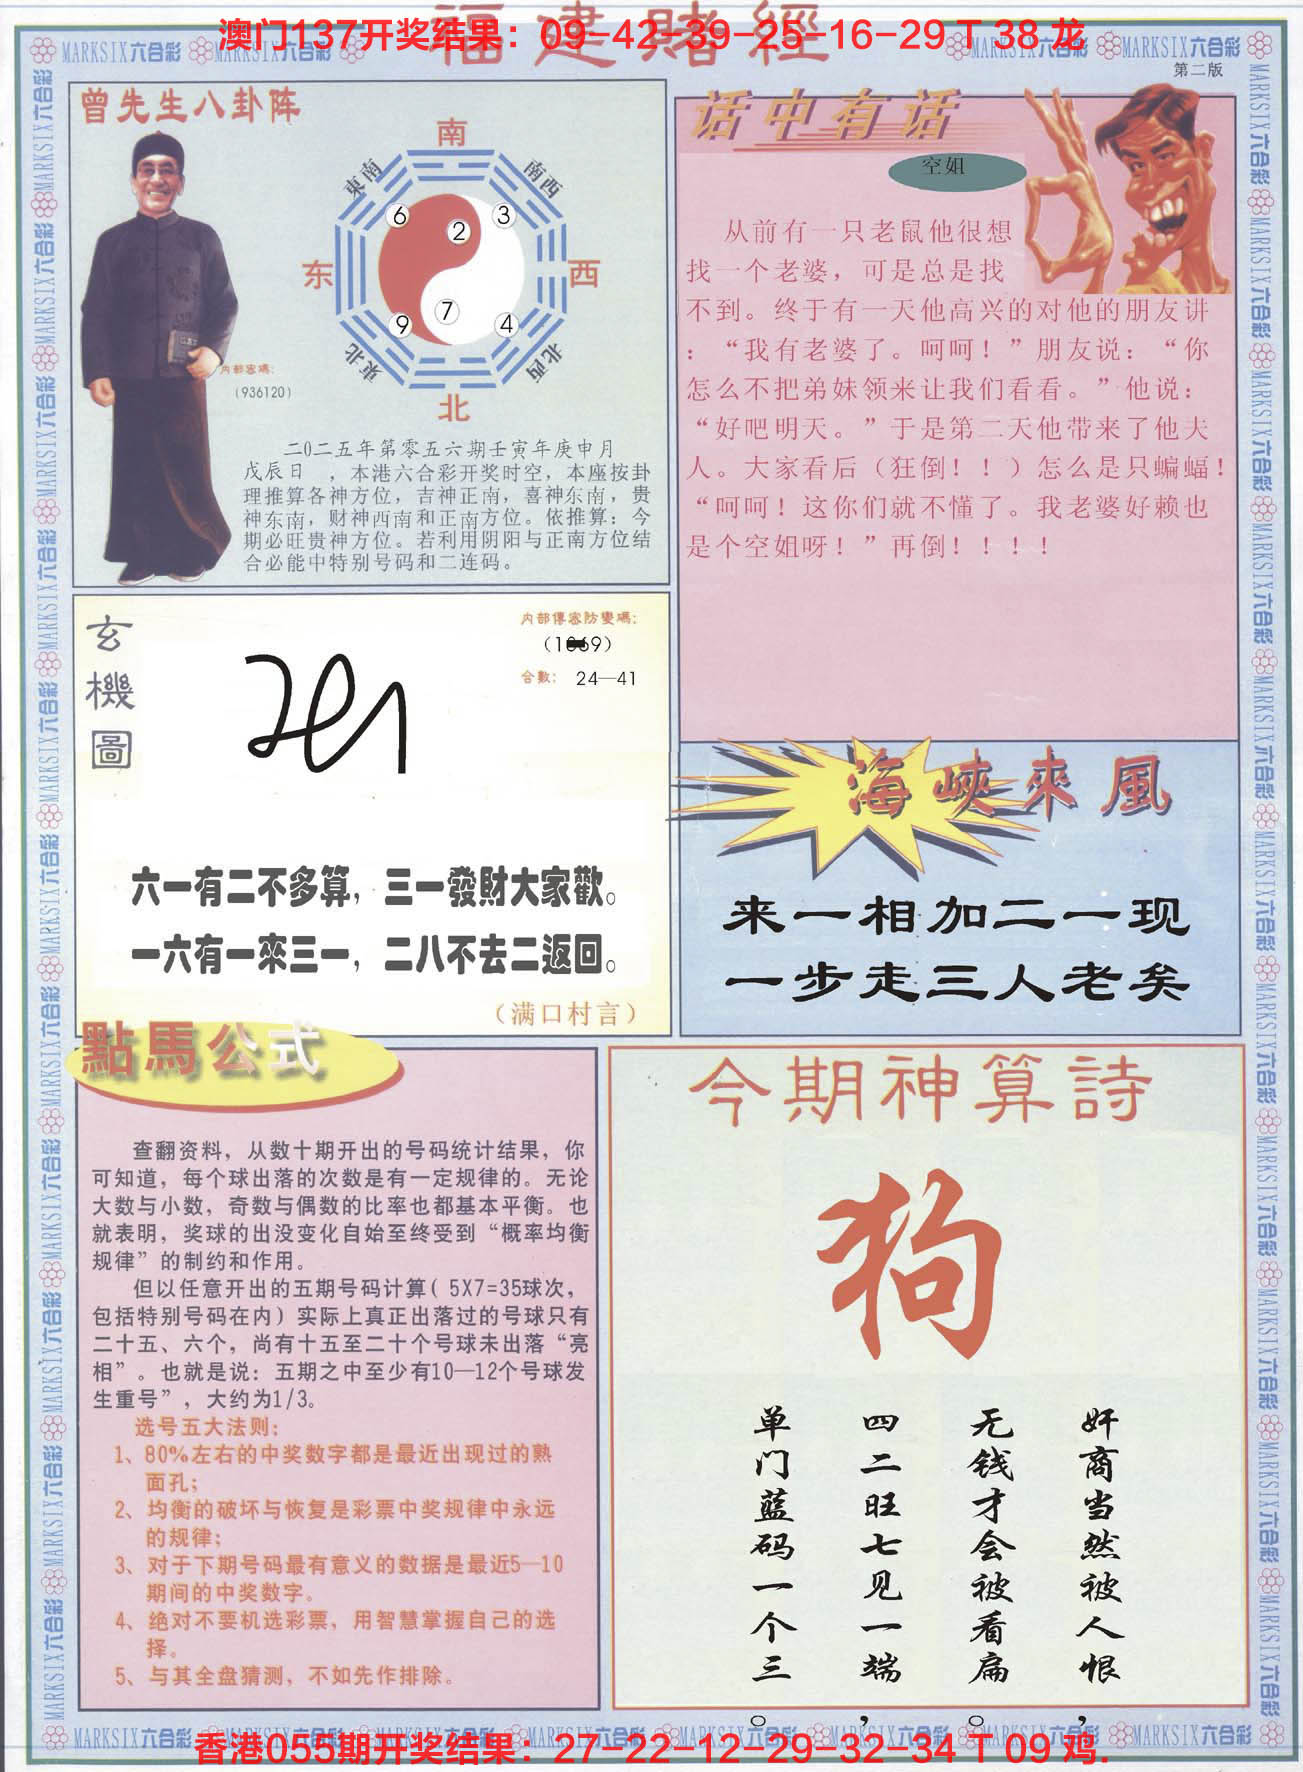 福建赌經
澳门137开奖结果：09-42-39-25-16-29 T 38 龙
MARKSIX六合彩 MARKSIX六合彩 MARKSIX六合彩 MARKSIX六合彩
第二版
曾先生八卦阵
南
東南
南西
6
2
3
东
西
7
9
4
東北
北西
北
内部密碼：
(936120)
二0二五年第零五六期壬寅年庚申月
戊辰日 ，本港六合彩开奖时空，本座按卦
理推算各神方位，吉神正南，喜神东南，贵
神东南，财神西南和正南方位。依推算：今
期必旺贵神方位。若利用阴阳与正南方位结
合必能中特别号码和二连码。
话中有话
空姐
从前有一只老鼠他很想
找一个老婆，可是总是找
不到。终于有一天他高兴的对他的朋友讲
：“我有老婆了。呵呵！”朋友说：“你
怎么不把弟妹领来让我们看看。”他说：
“好吧明天。”于是第二天他带来了他夫
人。大家看后（狂倒！！）怎么是只蝙蝠！
“呵呵！这你们就不懂了。我老婆好赖也
是个空姐呀！”再倒！！！！
玄機圖
内部傳密防變碼：
合數： 24—41
六一有二不多算，三一發財大家歡。
一六有一來三一，二八不去二返回。
（满口村言）
海峽來風
来一相加二一现
一步走三人老矣
點馬公式
查翻资料，从数十期开出的号码统计结果，你
可知道，每个球出落的次数是有一定规律的。无论
大数与小数，奇数与偶数的比率也都基本平衡。也
就表明，奖球的出没变化自始至终受到“概率均衡
规律”的制约和作用。
但以任意开出的五期号码计算( 5X7=35球次，
包括特别号码在内）实际上真正出落过的号球只有
二十五、六个，尚有十五至二十个号球未出落“亮
相”。也就是说：五期之中至少有10—12个号球发
生重号”，大约为1/3。
选号五大法则：
1、80%左右的中奖数字都是最近出现过的熟
面孔；
2、均衡的破坏与恢复是彩票中奖规律中永远
的规律；
3、对于下期号码最有意义的数据是最近5—10
期间的中奖数字。
4、绝对不要机选彩票，用智慧掌握自己的选
择。
5、与其全盘猜测，不如先作排除。
今期神算詩
狗
奸商当然被人恨，
无钱才会被看扁。
四二旺七见一端，
单门蓝码一个三。
MARKSIX六合彩 MARKSIX六合彩 MARKSIX六合彩 MARKSIX六合彩 MARKSIX六合彩 MARKSIX六合彩 MARKSIX六合彩 MARKSIX六合彩
香港055期开奖结果：27-22-12-29-32-34 T 09 鸡.